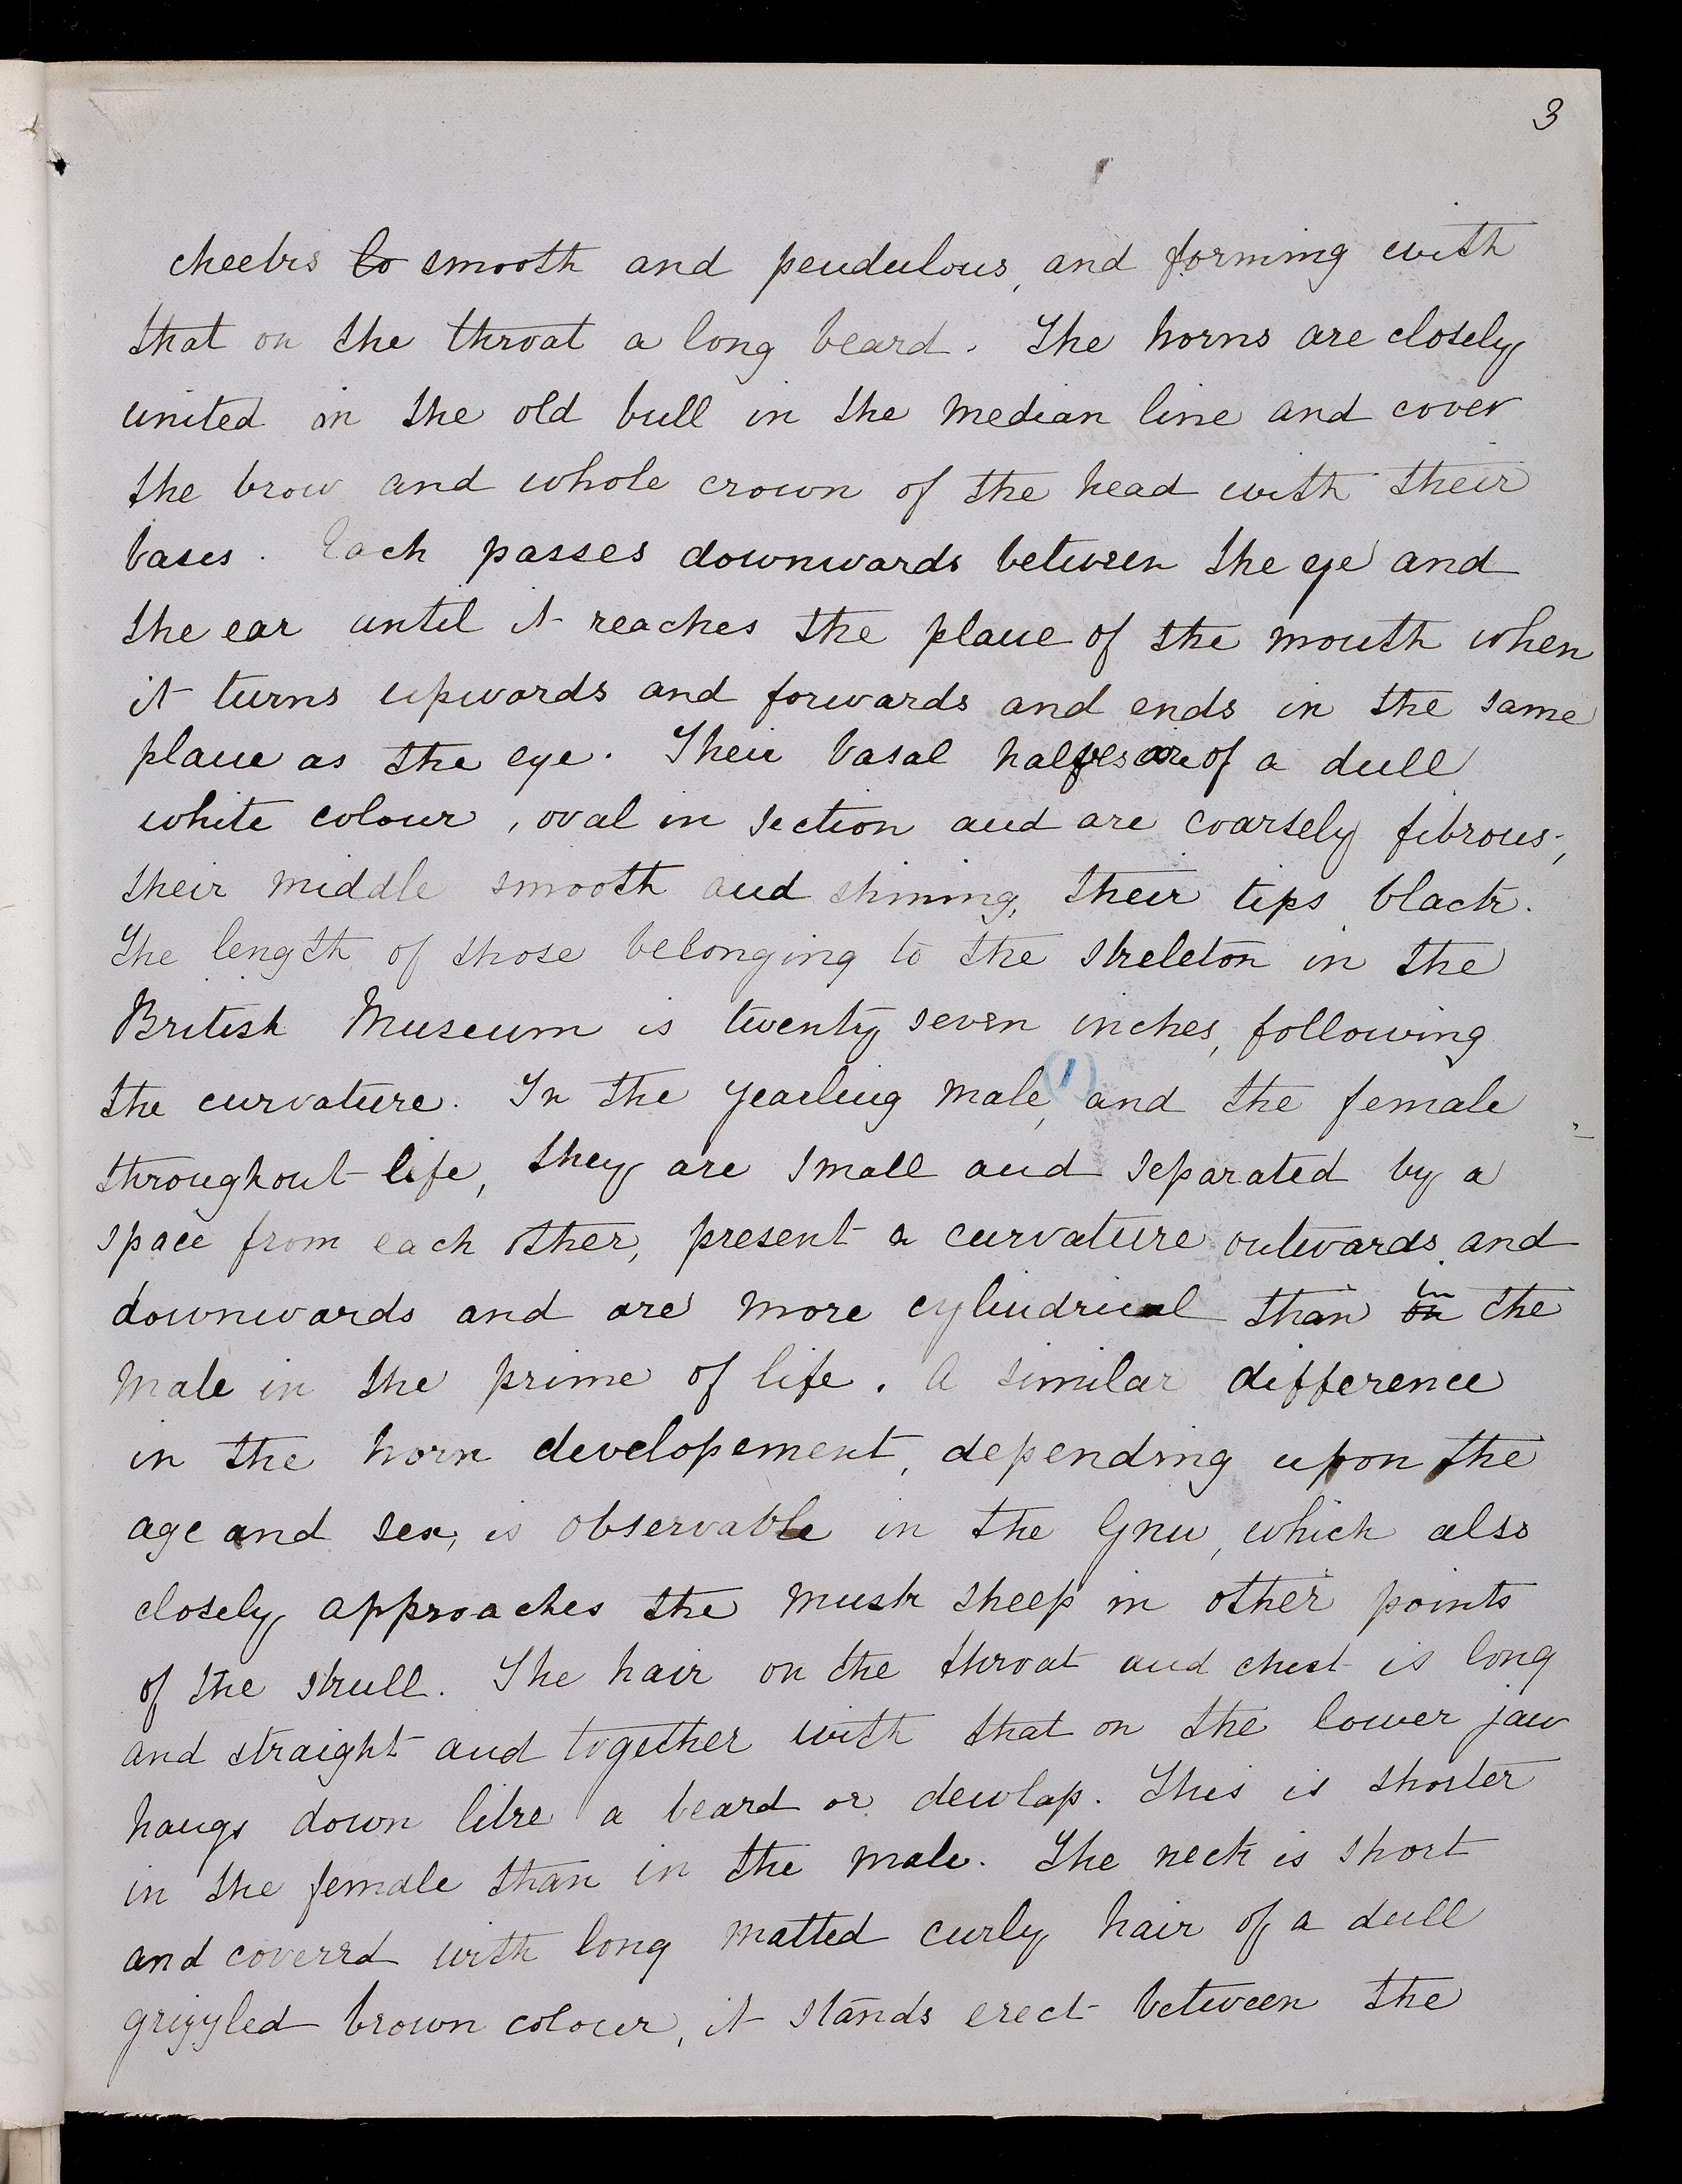 3
cheeks to smooth and pendulous, and forming with
that on the throat a long beard. The horns are closely
united in the old bull in the median line and cover
the brow and whole crown of the head with their
bases. Each passes downwards between the eye and
the ear until it reaches the plane of the mouth when
it turns upwards and forwards and ends in the same
plane as the eye. Their basal halves are of a dull
white colour, oval in section and are coarsely fibrous;
their middle smooth and shining, their tips black.
The length of those belonging to the skeleton in the
British Museum is twenty seven inches, following
the curvature. In the yearling male, (1) and the female
throughout life, they are small and separated by a
space from each other, present a curvature outwards and
downwards and are more cylindrical than on in the
male in the prime of life. A similar difference
in the horn developement, depending upon the
age and sex, is observable in the Gnu, which also
closely approaches the musk sheep in other points
of the skull. The hair on the throat and chest is long
and straight and together with that on the lower jaw
hangs down like a beard or dewlap. This is shorter
in the female than in the male. The neck is short
and covered with long matted curly hair of a dull
grizzled brown colour, it stands erect between the